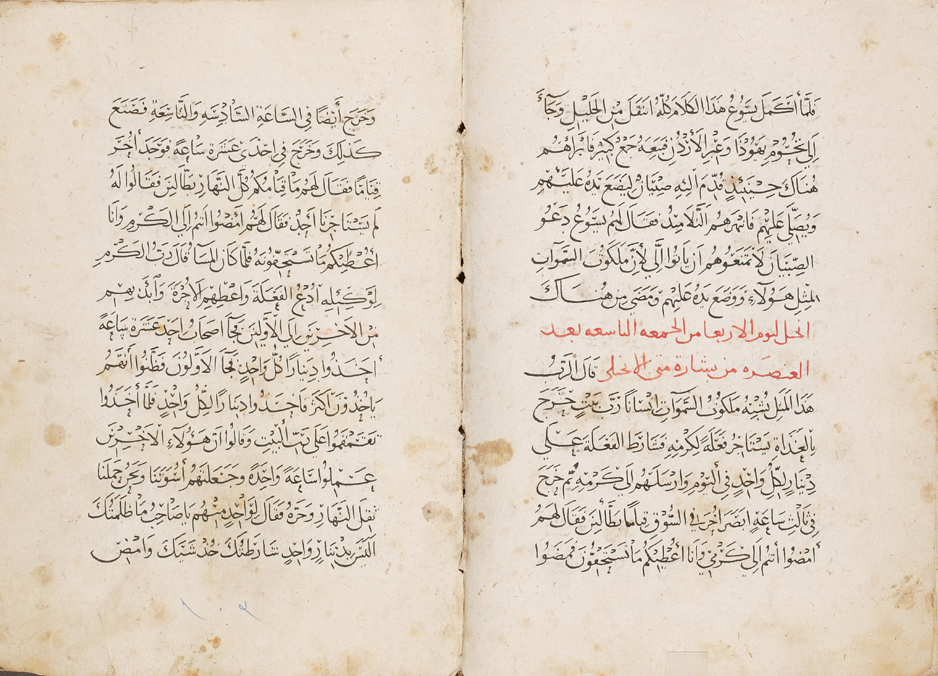 فلَمَّا أكمَلَ يسُوعُ هَذا الكَلامَ كُلَّهُ انتقَلَ مِنَ الجَليلِ وجَآءَ
إلى تخُومِ يَهُوذَا وعَبْرِ الأُرْدُنِّ فتبعَهُ جَمعٌ كثِيرٌ فابرَاهُم
هُناكَ حِينَيئذٍ قُدِّمَ الَيْهِ صِبْيَانٌ ليَضَعَ يَدَهُ عَليْهم
ويُصَلّي عَليْهم فانتهرَهُم التّلامِيذُ فقالَ لَهُم يسُوعُ دَعُو
الصِّبْيَانَ لا تمنَعُوهُم ان يأتوا الَّي لأنَّ مَلكوتَ السَّمَوات
لمثلِ هَؤلآءِ ووَضعَ يدَهُ عليهم ومَضَى مِن هُناكَ
انجيل ليوم الاربعا من الجمعه التاسعه بعد
العنصره من بشارة متى الانجيلي قالَ الرَّبُّ
هَذا المَثلَ يُشْبِهُ ملَكوُتُ السَّمَواتِ إنْسَانًا رَبَّ بَيْتٍ خَرجَ
بالغَداةِ يَسْتَاجُر فعَلَةً لكرْمِهِ فشَارَط الفَعَلةَ عَلى
دِينَارٍ لِكُلِّ واحِدٍ في اليَوْمِ وارْسَلَهُم إلى كَرْمِهِ ثم خَرجَ
في ثالث سَاعةٍ ابصَرَ اُخَرَ في السُّوقِ قيامًا بَطّالينَ فقالَ لَهُمُ
أمْضُوا أنتُم إلى كَرْمي وأنَا اعْطِيكُم مَا تسْتحِقّونَ فمَضَوُا
وَخَرجَ أيضًا في السَّاعَةِ السَّادسَةِ وَالتّاسِعَةِ فَصَنَعَ
كذلِكَ وخَرَجَ في احْدَى عَشرَةَ سَاعَةً فوَجَدَ أُخَرَ
قيَامًا فقَالَ لَهُمْ مَا قيَامُكُمْ كُلَّ النَّهارِ بَطّالينَ فقَالُوا لَهُ
لم يَسْتأجِرْنا أحَدٌ فقَالَ لَهُمُ امْضُوا أنتُم إلى الكَرْمِ وأنا
أعْطيكُم مَا تسْتَحِقّونَهُ فلَمّا كانَ المسَآء قالَ رَبُّ الكَرْمِ
لِوَكِيلهِ أدْعُ الفَعَلَةَ وَاعْطِهم الاجْرَةَ وَابْدَ بِهِم
من الآخِرينَ إلى الأوّلينَ فجآءَ اصْحَابُ احْدَ عَشَرَةَ سَاعةً
أخَذُوا دِينَارًا كُلُّ وَاحِدٍ فجآءَ الاوّلُونَ فظَنُّوا أنَّهُم
يَاخُذُونَ أكثرَ فاخَذُوا دِينَارًا لِكُلِّ واحِدٍ فلَمّا أَخَذُوا
تقَمْقَمُوا عَلى رَبِّ البَيْتِ وقالُوا إنَّ هَؤلآءِ الآخِرِينَ
عَمِلُوا سَاعةً وَاحِدَةً وَجَعَلتَهُم أُسْوَتَنا ونحنُ حمَلنَا
ثقلَ النَّهارِ وحَرَّهُ فقالَ لِوَاحِدٍ مِنْهُم يا صَاحِبُ مَا ظلَمتُكَ
ألَيْسَ بِدينَارٍ واحِدٍ شارَطتُكَ خُذ شَيَّكَ وَامْضِ